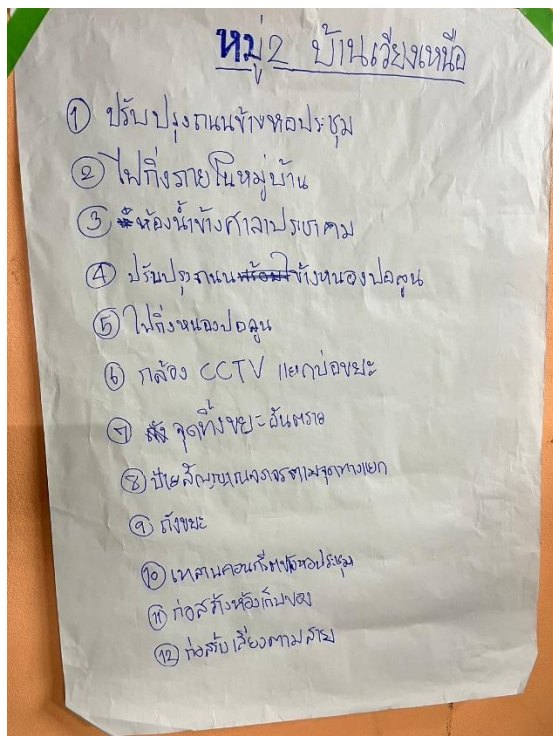 หมู่2 บ้านเวียงเหนือ
① ปรับปรุงถนนข้างหอประชุม
② ไฟกิ่งภายในหมู่บ้าน
③ ห้องน้ำข้างศาลาประชาคม
④ ปรับปรุงถนนข้างหนองปอลูน
⑤ ไฟกิ่งหนองปอลูน
⑥ กล้อง CCTV แยกบ่อขยะ
⑦ จุดทิ้งขยะอันตราย
⑧ ป้ายสัญญาณจราจรตามจุดทางแยก
⑨ ถังขยะ
⑩ เทลานคอนกรีตหอประชุม
⑪ ก่อสร้างห้องเก็บของ
⑫ ก่อสร้างเสียงตามสาย